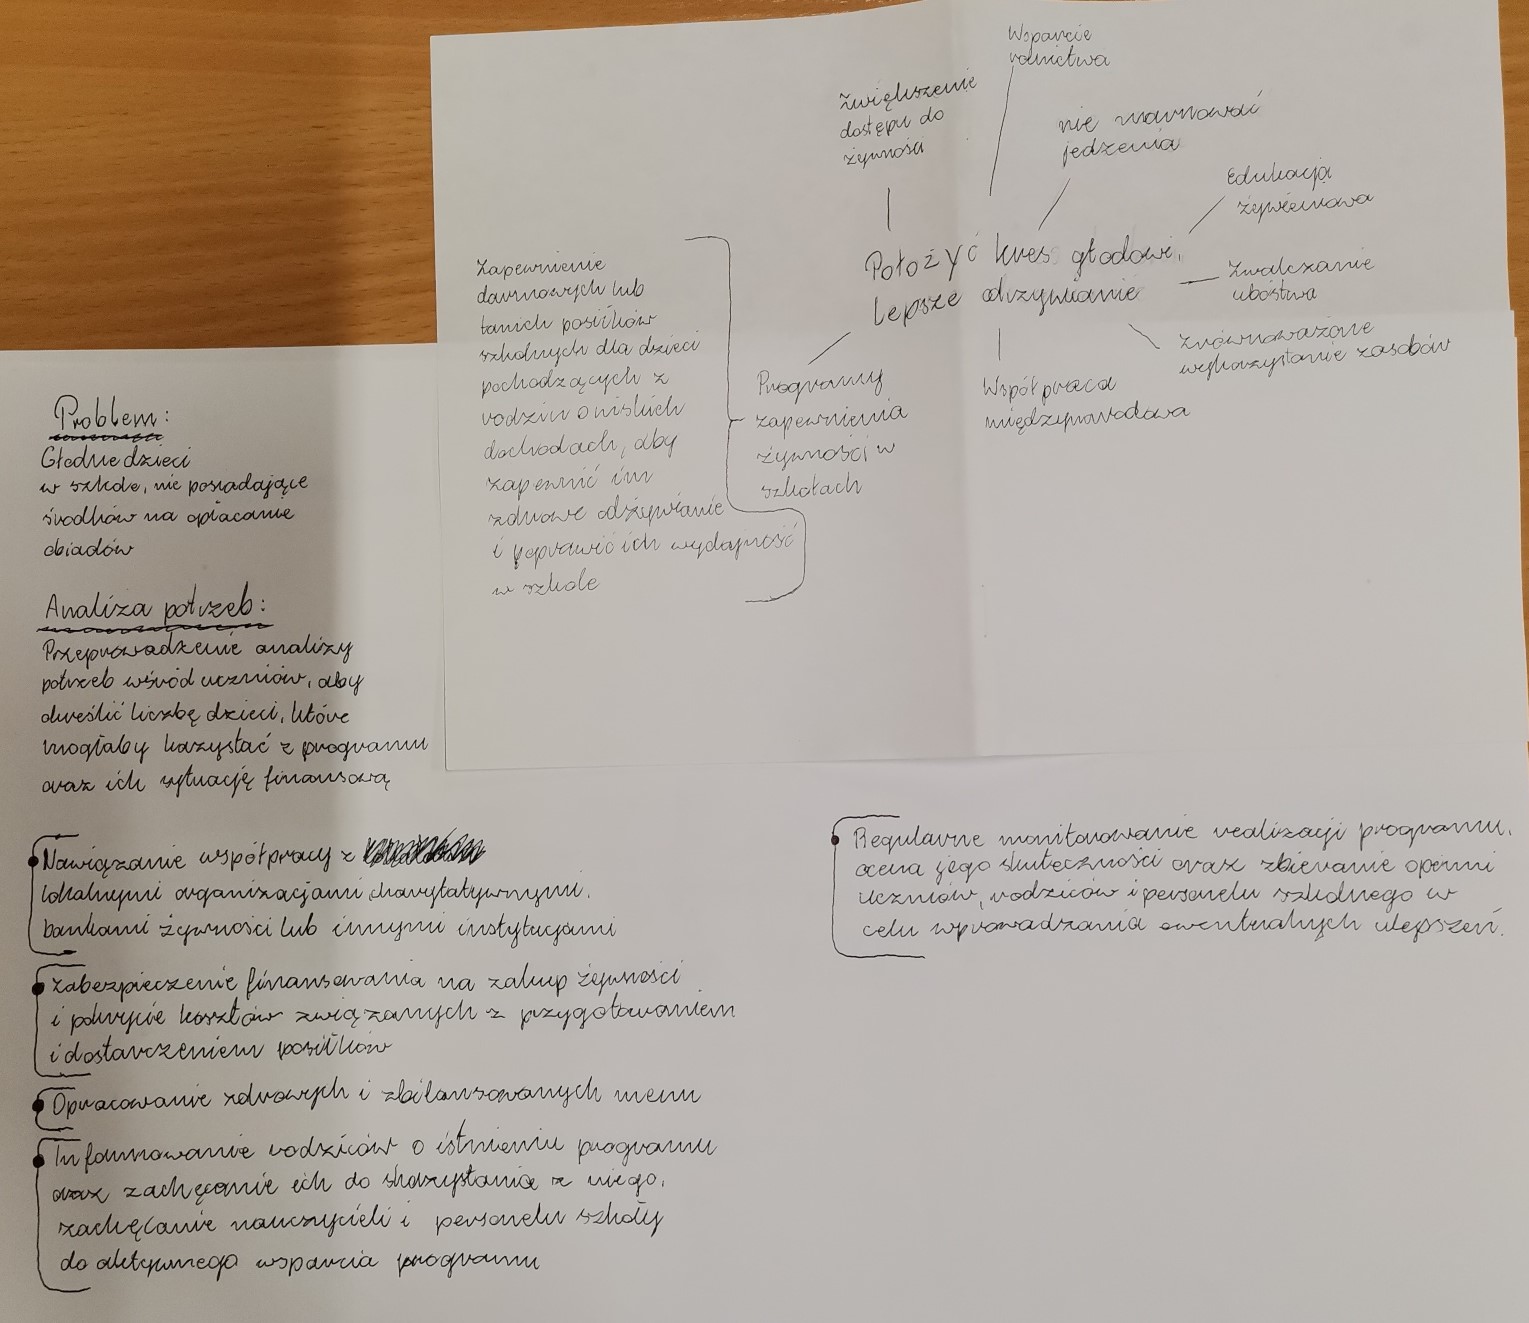 Wsparcie
rolnictwa
Zwiększenie
dostępu do
żywności
nie marnować
jedzenia
Edukacja
żywieniowa
Położyć kres głodowi,
lepsze odżywianie
Zwalczanie
ubóstwa
Zrównoważone
wykorzystanie zasobów
Współpraca
międzynarodowa
Programy
zapewnienia
żywności w
szkołach
Zapewnienie
darmowych lub
tanich posiłków
szkolnych dla dzieci
pochodzących z
rodzin o niskich
dochodach, aby
zapewnić im
zdrowe odżywianie
i poprawić ich wydajność
w szkole
Problem:
Głodne dzieci
w szkole, nie posiadające
środków na opłacanie
obiadów
Analiza potrzeb:
Przeprowadzenie analizy
potrzeb wśród uczniów, aby
określić liczbę dzieci, które
mogłaby kozystać z programu
oraz ich sytuację finansową
Nawiązanie współpracy z
lokalnymi organizacjami charytatywnymi,
bankami żywności lub innymi instytucjami
Zabezpieczenie finansowania na zakup żywności
i pokrycie kosztów związanych z przygotowaniem
i dostarczeniem posiłków
Opracowanie zdrowych i zbilansowanych menu
Informowanie rodziców o istnieniu programu
oraz zachęcanie ich do skorzystania z niego,
zachęcanie nauczycieli i personelu szkoły
do aktywnego wsparcia programu
Regularne monitorowanie realizacji programu,
ocena jego skuteczności oraz zbieranie opinni
uczniów, rodziców i personelu szkolnego w
celu wprowadzania ewentualnych ulepszeń.